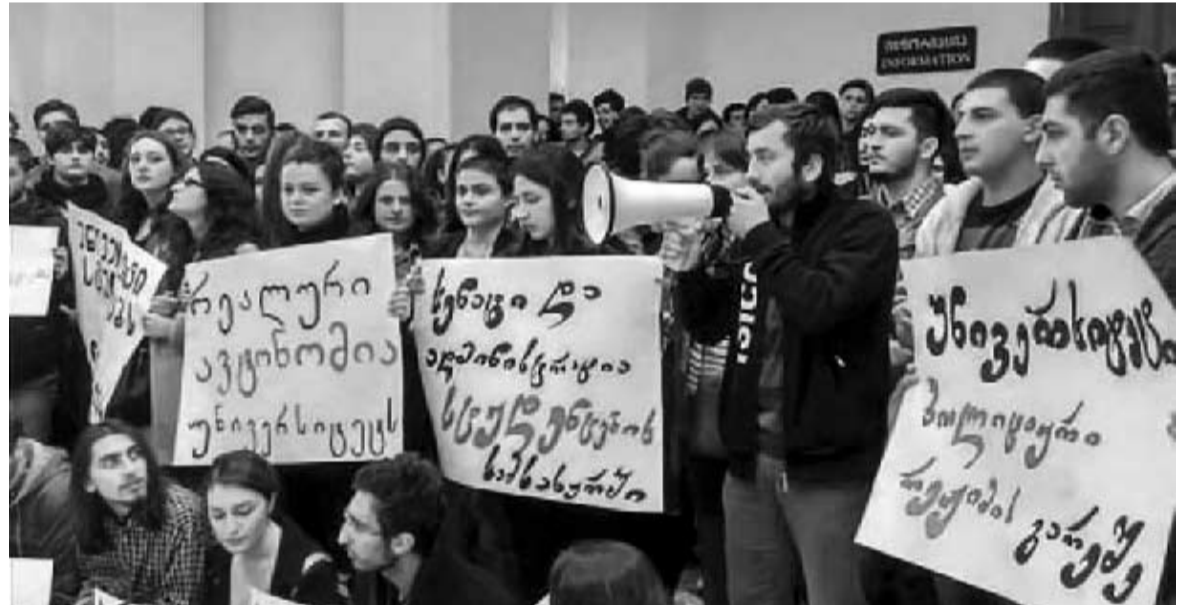 ინფორმაცია
INFORMATION
რეალური
ავტონომია
უნივერსიტეტს
სენატი და
ადმინისტრაცია
სტუდენტების
სამსახურში
უნივერსიტეტი
პოლიტიკური
რეჟიმის გარეშე